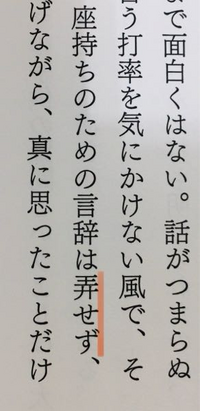 まで面白くはない。話がつまらぬ
う打率を気にかけない風で、そ
座持ちのための言辞は弄せず、
げながら、真に思ったことだけ